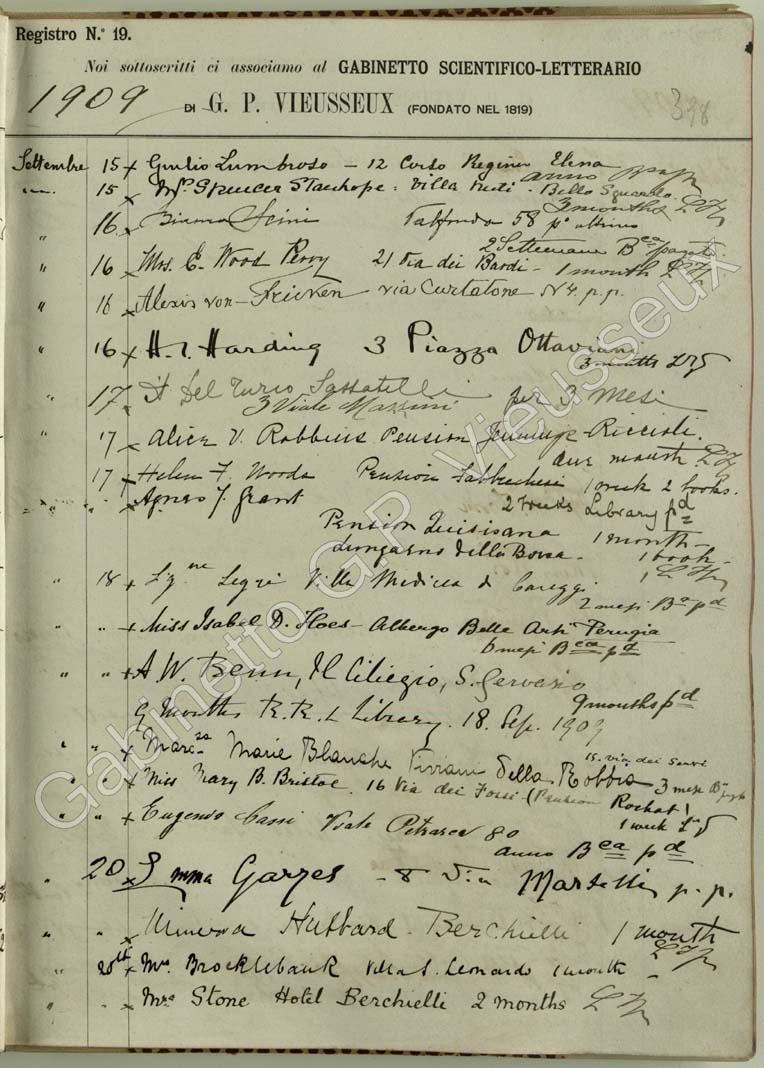 Registro N.º 19.
Noi sottoscritti ci associamo al GABINETTO SCIENTIFICO-LETTERARIO
1909 DI G. P. VIEUSSEUX (FONDATO NEL 1819) 398
Settembre 15 x Giulio Lumbroso — 12 Corso Regina Elena
anno
15 x Mrs Spencer Stanhope: Villa Nuti - Bello Sguardo
3 months
" 16 Bianca 58 pº ultimo
2 Settimane Bca pagato
" 16 x Mrs. E. Wood Perry 21 Via dei Bardi - 1 month
" 16 x Alexis von Fricken via Curtatone N 4. p.p.
" 16 x H. I. Harding 3 Piazza Ottaviani
3 months
17 Del Turco Sassatelli per 3 mesi
3 Viale Mazzini
" 17 x Alice V. Robbins Pension Jennings-Riccioli.
one month
17 x Helen F. Woods Pension 1 week 2 books.
Agnes J. Grant 2 weeks Library pd
Pension Quisisana 1 month -
Lungarno della Borsa - 1 book -
" " 18 x Villa Medicea di Careggi 1
2 mesi Ba pd
" " x Miss Isabel D. Hoes - Albergo Belle Arti Perugia
6 mesi Bca pd
" " x A. W. Benn, Il Ciliegio, S. Gervasio
9 months pd
9 Months Library. 18. Sep. 1909
" " x Marie Blanche Viviani Della Robbia 15. via dei Servi
3 mesi
" " x Miss Mary B. Bristol. 16 Via dei Fossi (Pension Rochat)
1 week
" " x Eugenio Cassi Viale Petrarca 80
anno Bca pd
" 20 x Emma Garzes - 8 Via Martelli p. p.
" " x Minerva Hubbard - Berchielli 1 month
" 20th x Mrs Brocklebank Villa S. Leonardo 1 month
" " x Mrs Stone Hotel Berchielli 2 months
Gabinetto G.P. Vieusseux